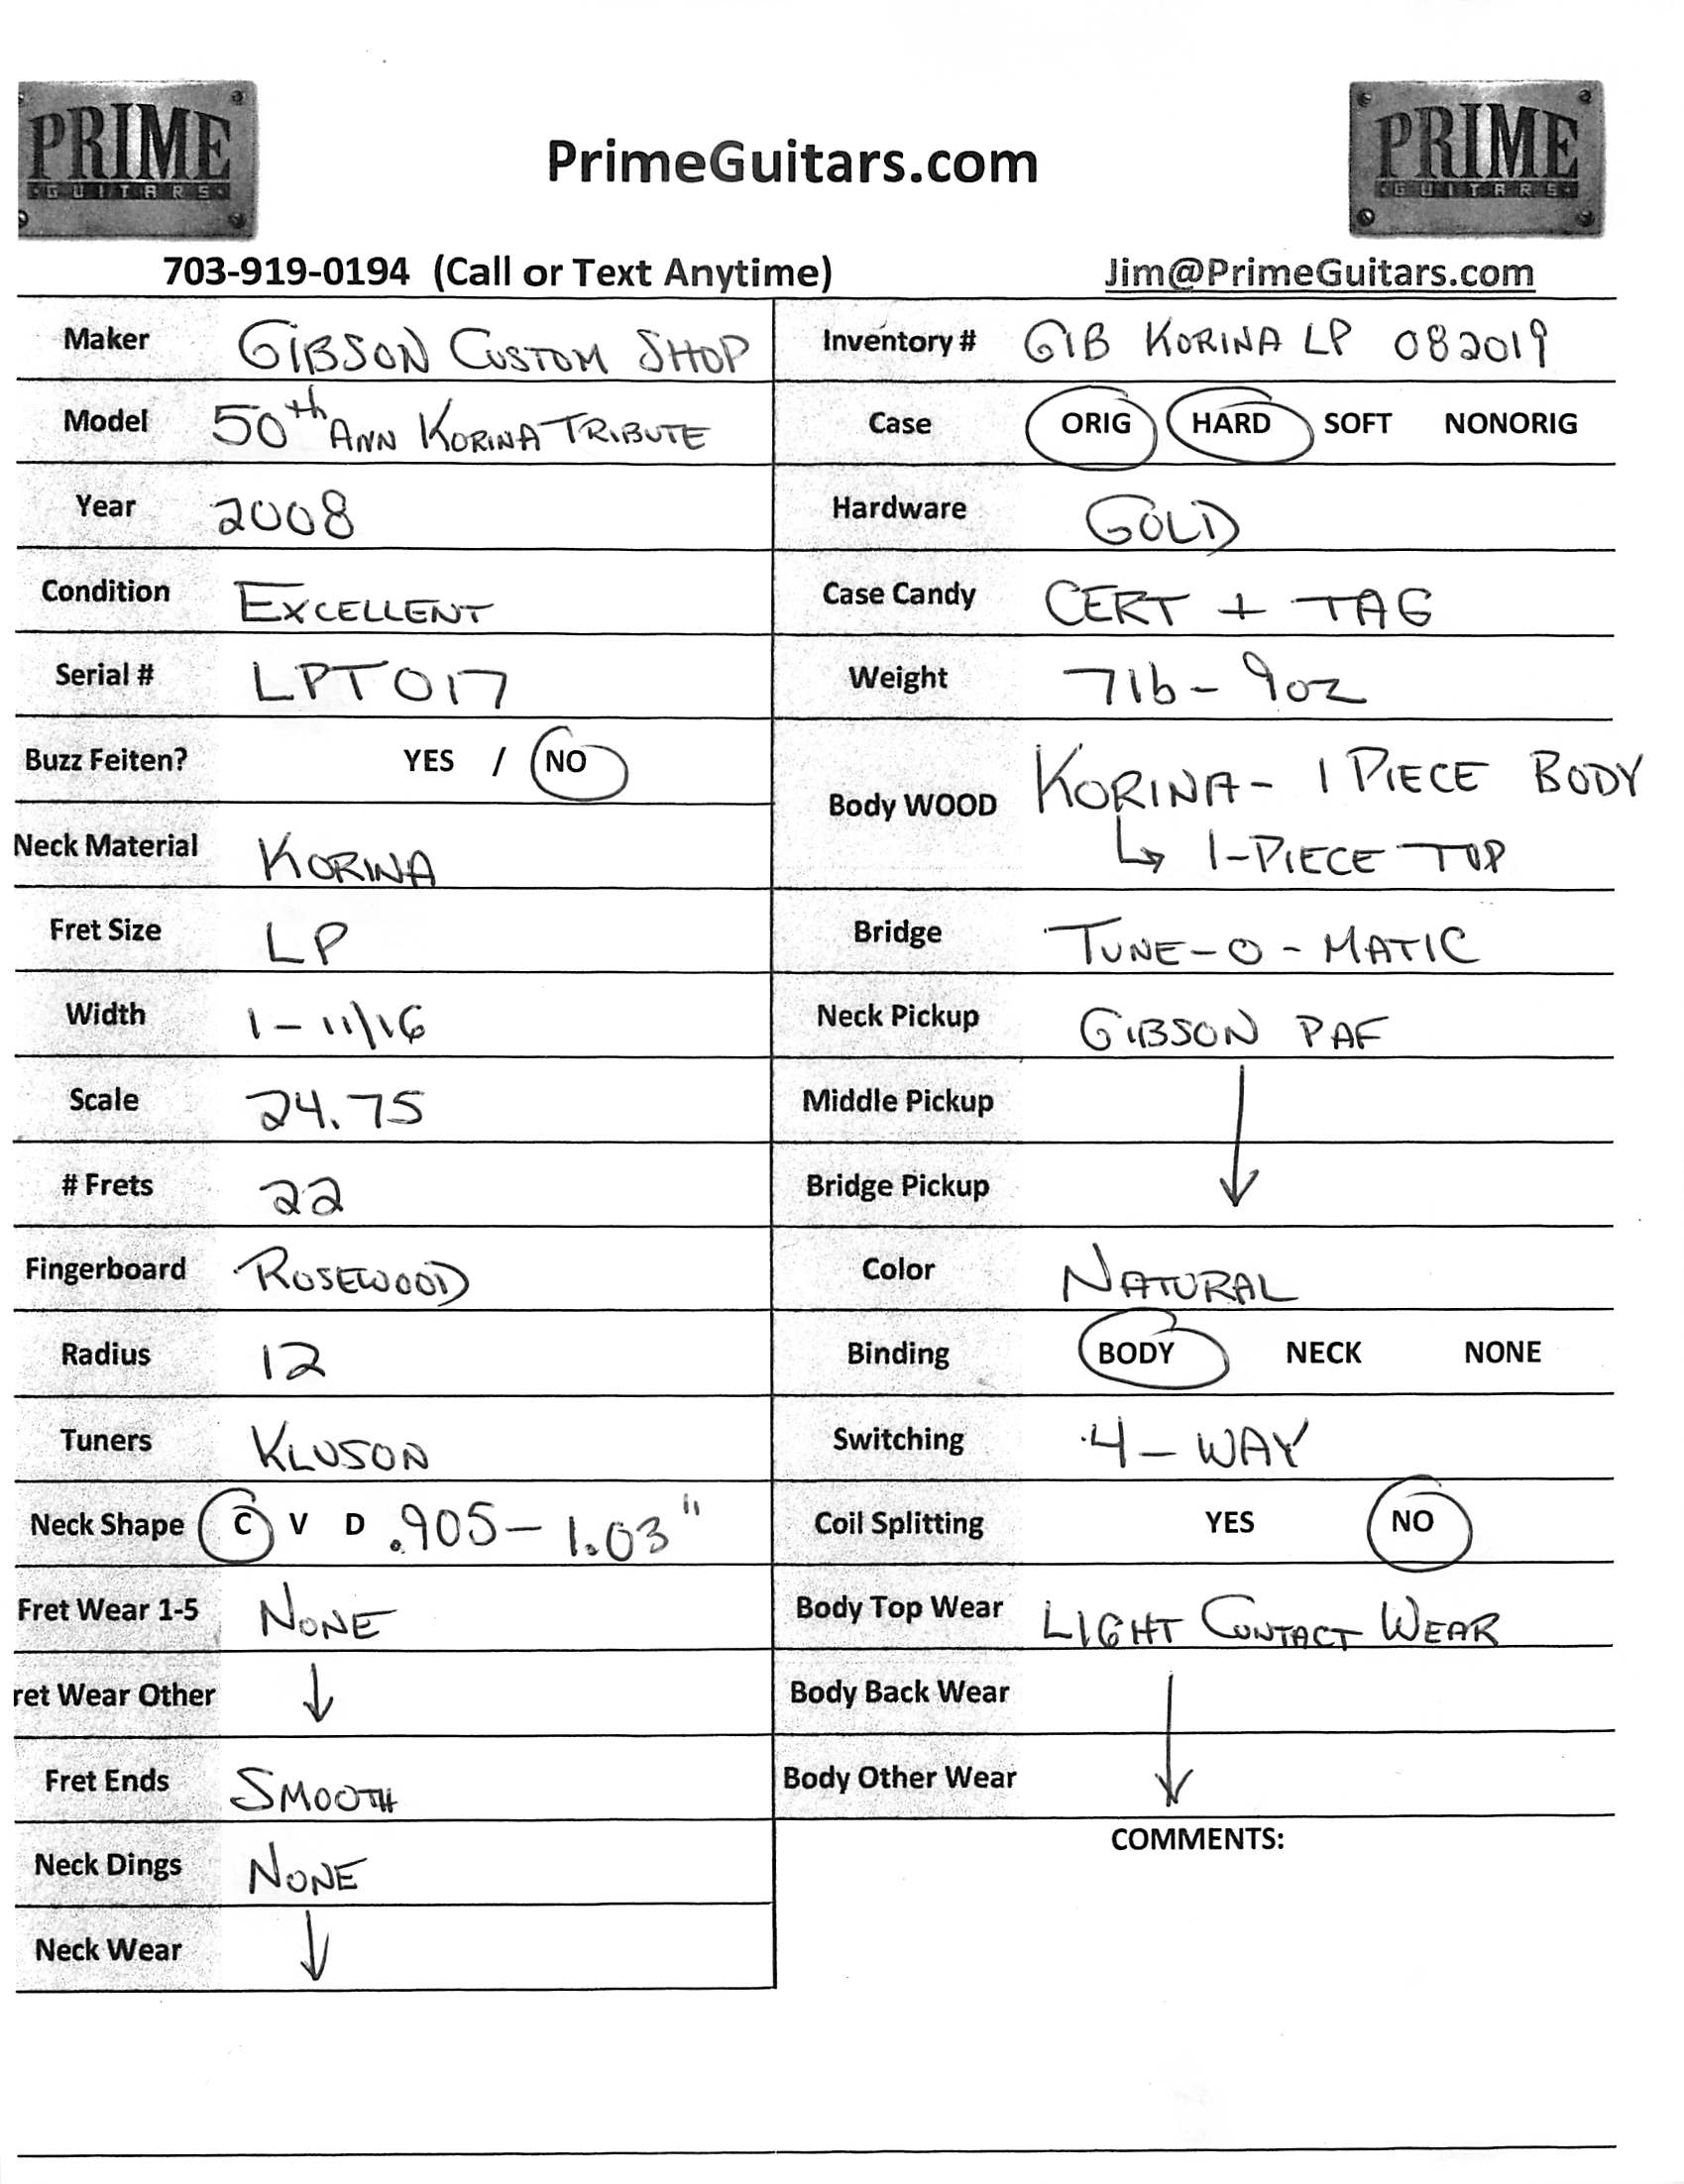 PRIME
GUITARS
PrimeGuitars.com
PRIME
GUITARS
703-919-0194 (Call or Text Anytime)
Jim@PrimeGuitars.com
Maker GIBSON CUSTOM SHOP
Model 50th ANN KORINA TRIBUTE
Year 2008
Condition EXCELLENT
Serial # LPT017
Buzz Feiten? YES / NO
Neck Material KORINA
Fret Size LP
Width 1-11/16
Scale 24.75
# Frets 22
Fingerboard ROSEWOOD
Radius 12
Tuners KLUSON
Neck Shape C V D .905-1.03"
Fret Wear 1-5 NONE
ret Wear Other ↓
Fret Ends SMOOTH
Neck Dings NONE
Neck Wear ↓
Inventory # GIB KORINA LP 082019
Case ORIG HARD SOFT NONORIG
Hardware GOLD
Case Candy CERT + TAG
Weight 7lb-9oz
Body WOOD KORINA- 1 PIECE BODY
↳ 1-PIECE TOP
Bridge TUNE-O-MATIC
Neck Pickup GIBSON PAF
Middle Pickup ↓
Bridge Pickup
Color NATURAL
Binding BODY NECK NONE
Switching 4-WAY
Coil Splitting YES NO
Body Top Wear LIGHT CONTACT WEAR
Body Back Wear ↓
Body Other Wear
COMMENTS: